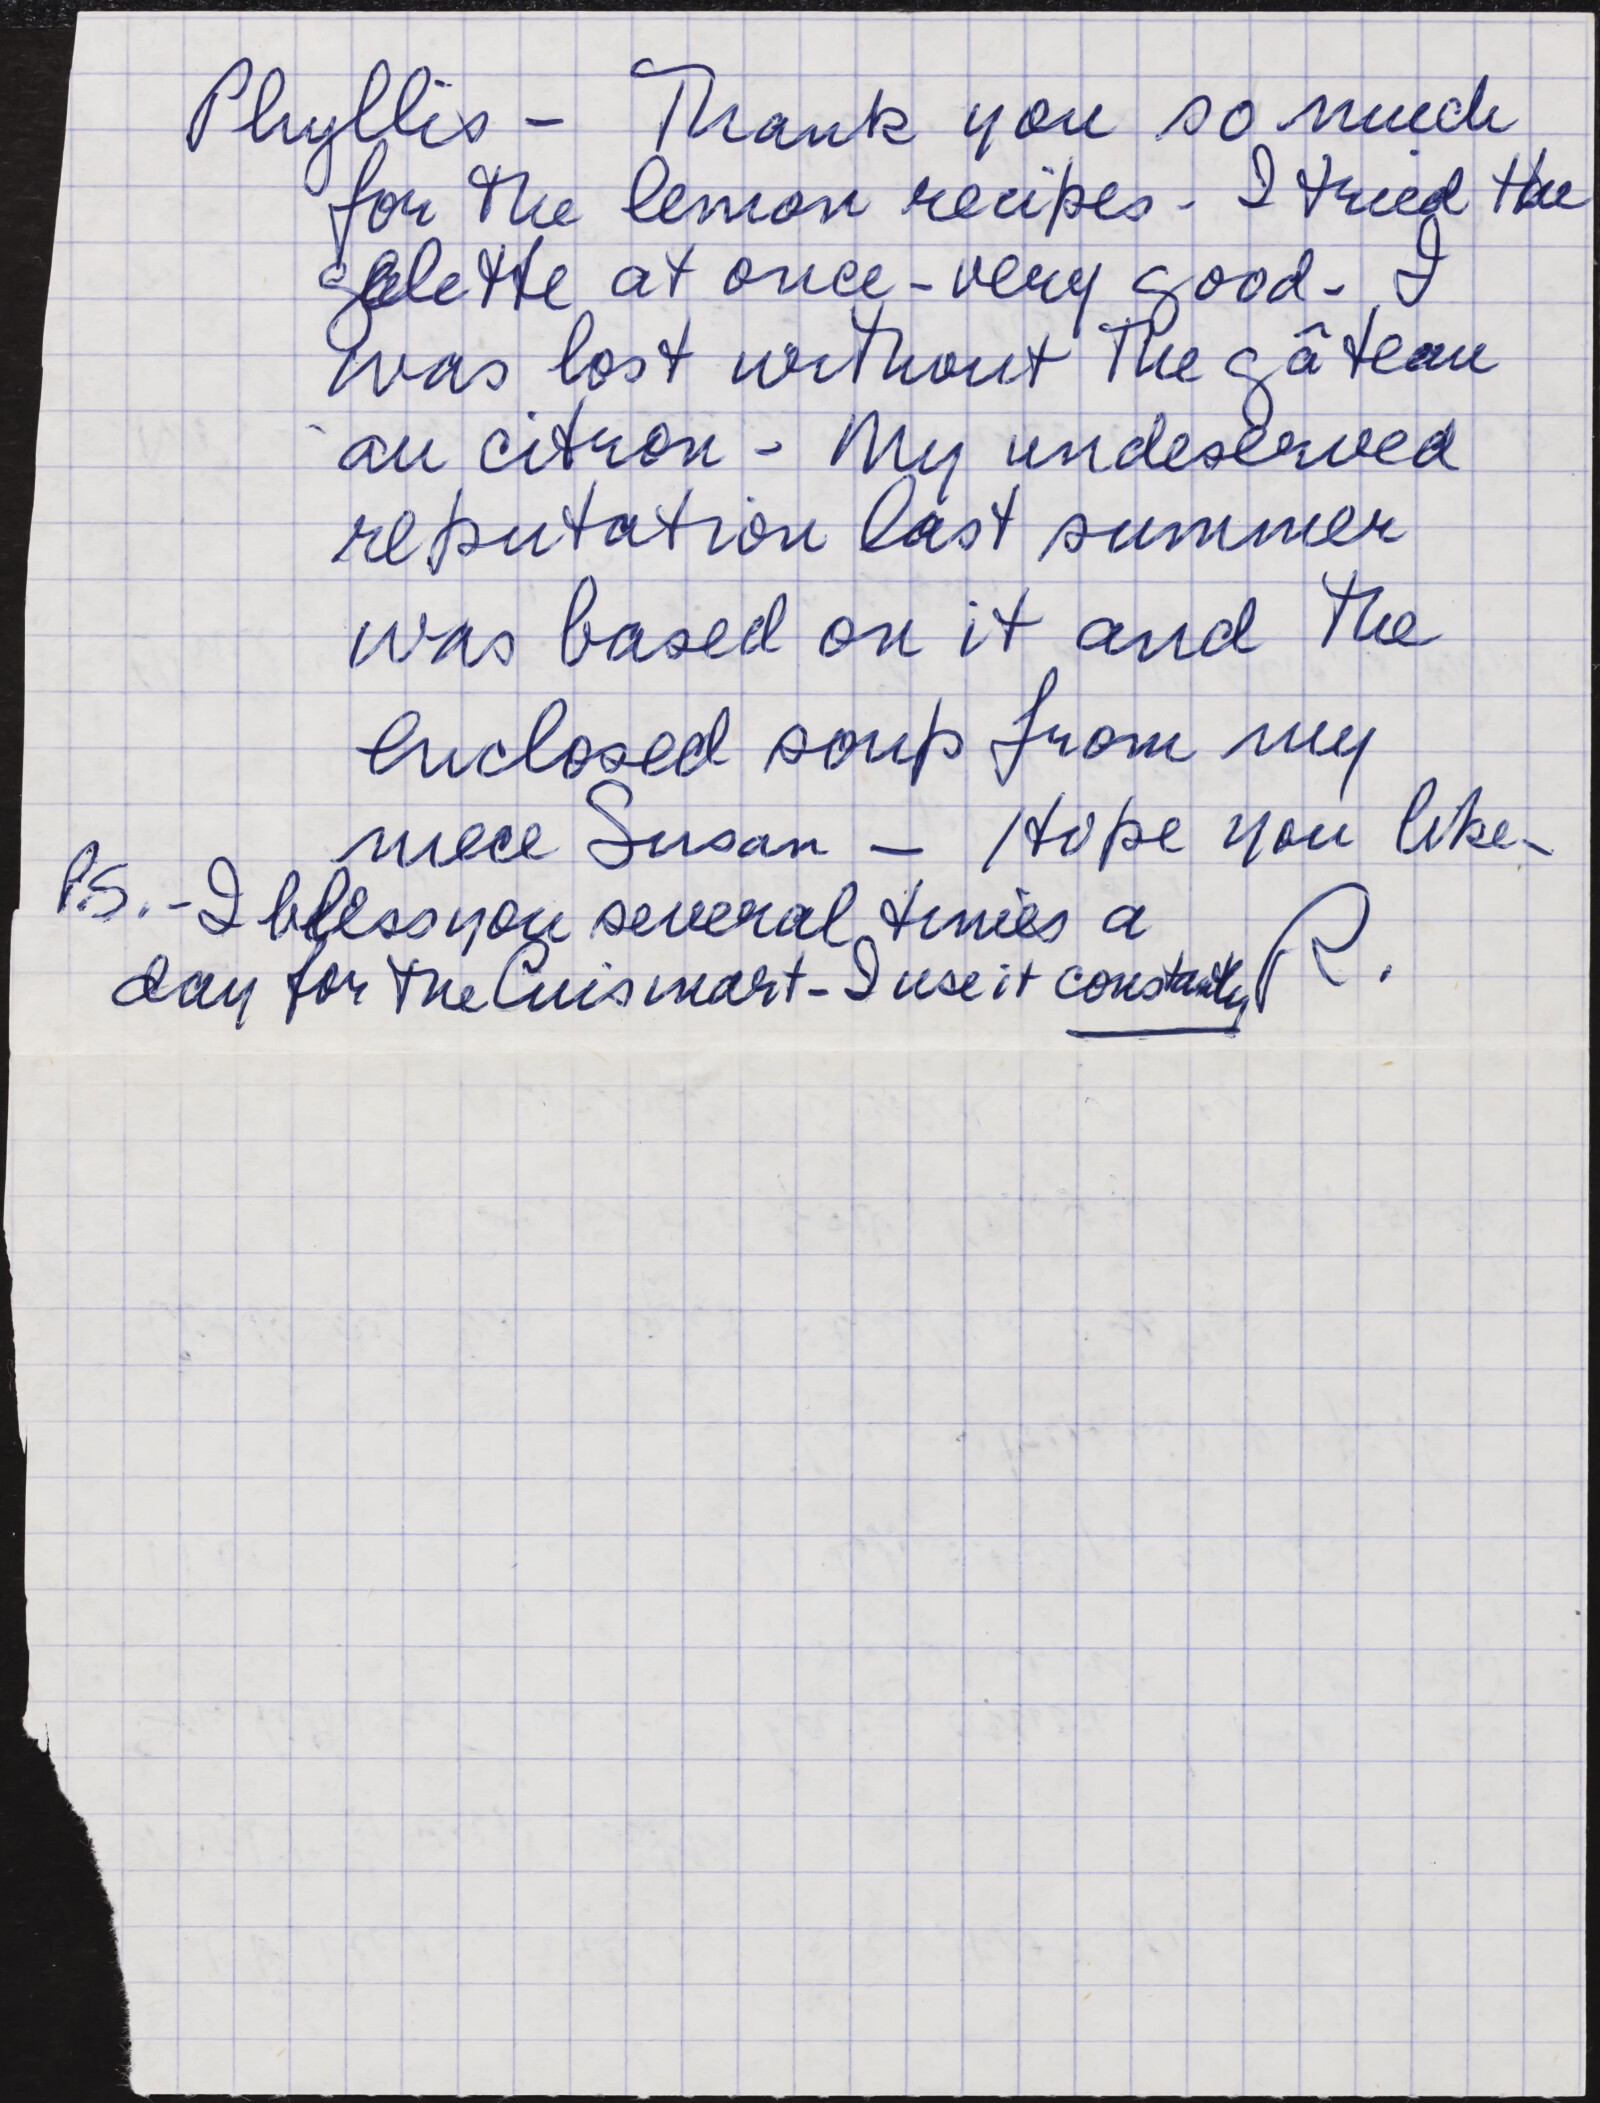 Phyllis - Thank you so much
for the lemon recipes - I tried the
galette at once - very good - I
was lost without the gâteau
au citron - My undeserved
reputation last summer
was based on it and the
enclosed soup from my
niece Susan - Hope you like -
P.S. - I bless you several times a
day for the Cuismart - I use it constantly
R.